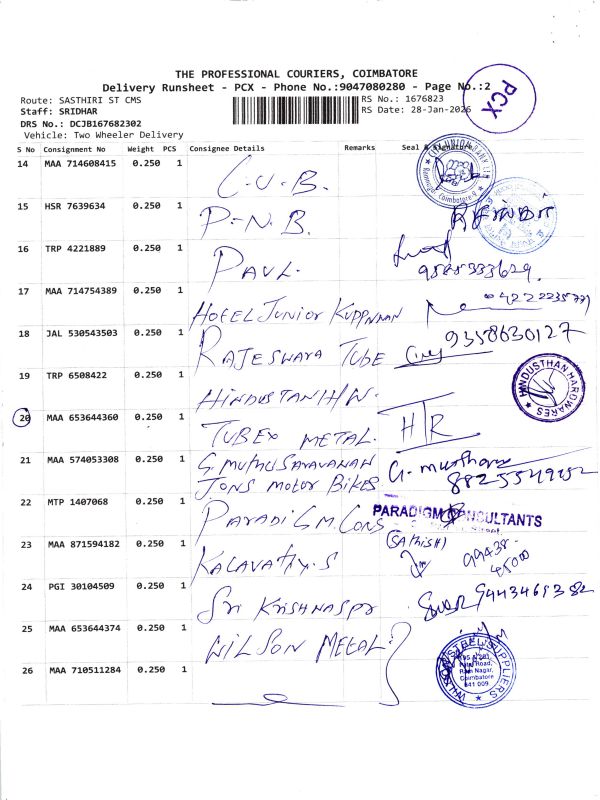 THE PROFESSIONAL COURIERS, COIMBATORE
Delivery Runsheet - PCX - Phone No.:9047080280 - Page No.:2
PCX
Route: SASTHIRI ST CMS
RS No.: 1676823
Staff: SRIDHAR
RS Date: 28-Jan-2026
DRS No.: DCJB167682302
Vehicle: Two Wheeler Delivery
S No Consignment No Weight PCS Consignee Details Remarks Seal & Signature
14 MAA 714608415 0.250 1 C.U.B.
15 HSR 7639634 0.250 1 P.N.B.
16 TRP 4221889 0.250 1 PAUL.
9585333629
17 MAA 714754389 0.250 1 HOTEL JUNIOR KUPPNNAN
18 JAL 530543503 0.250 1 RAJESWARA TUBE 9358630127
19 TRP 6508422 0.250 1 HINDUSTAN H/W.
HINDUSTHAN HARDWARES
20 MAA 653644360 0.250 1 TUBEX METAL. HTR
21 MAA 574053308 0.250 1 G. MUTHUSARAVANAN
JONS MOTOR BIKES
22 MTP 1407068 0.250 1 PARADIGM. CONS
PARADIGM CONSULTANTS
23 MAA 871594182 0.250 1 KALAVATHY.S
(SATHISH)
99438-
45000
24 PGI 30104509 0.250 1 SRI KRISHNASPR
25 MAA 653644374 0.250 1 WILSON METAL.
26 MAA 710511284 0.250 1
STEEL SUPPLIERS
Ram Nagar,
Coimbatore
641 009